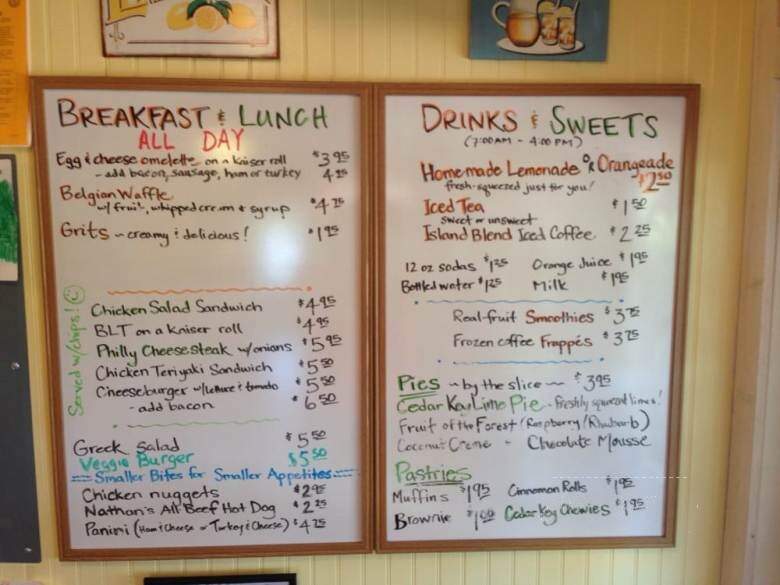 BREAKFAST & LUNCH
ALL DAY
Egg & cheese omelette on a kaiser roll $3.95
- add bacon, sausage, ham or turkey
Belgian Waffle
w/ fruit, whipped cream & syrup
Grits - creamy & delicious! $1.95
Served w/chips!
Chicken Salad Sandwich $4.95
BLT on a kaiser roll $4.95
Philly Cheesesteak w/onions $5.95
Chicken Teriyaki Sandwich $5.50
Cheeseburger w/lettuce & tomato $5.50
- add bacon $6.50
Greek Salad $5.50
Veggie Burger $5.50
Smaller Bites for Smaller Appetites
Chicken nuggets $2.95
Nathan's All Beef Hot Dog $2.25
Panini (Ham & Cheese or Turkey & Cheese) $4.75
DRINKS & SWEETS
(7:00AM - 4:00PM)
Homemade Lemonade OR Orangeade
fresh-squeezed just for you! $2.50
Iced Tea $1.50
sweet or unsweet
Island Blend Iced Coffee $2.25
12 oz sodas $1.25 Orange Juice $1.95
Bottled water $1.25 Milk $1.95
Real-fruit Smoothies $3.75
Frozen coffee Frappés $3.75
Pies - by the slice - $3.95
Cedar Key Lime Pie - freshly squeezed limes!
Fruit of the Forest (Raspberry/Rhubarb)
Coconut Creme - Chocolate Mousse
Pastries
Muffins $1.95 Cinnamon Rolls $1.95
Brownie $1.00 Cedar Key Chewies $1.95